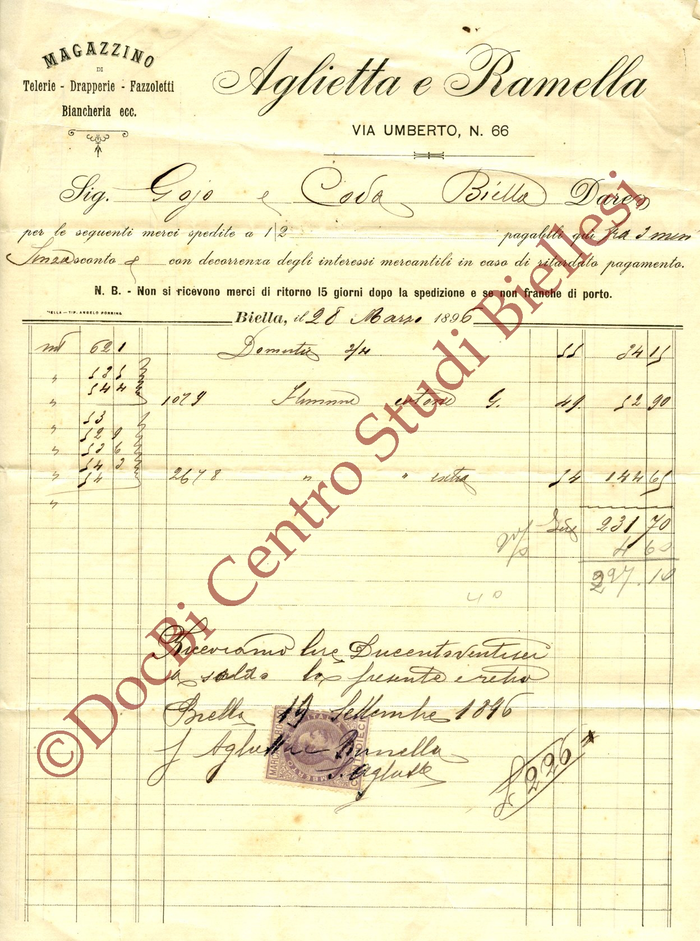 MAGAZZINO
DI
Telerie - Drapperie - Fazzoletti
Biancheria ecc.
Aglietta e Ramella
VIA UMBERTO, N. 66
Sig. Gojo e Coda Biella Dare
per le seguenti merci spedite a 1/2 pagabili qui fra 3 mesi
Senza sconto e con decorrenza degli interessi mercantili in caso di ritardato pagamento.
N. B. - Non si ricevono merci di ritorno 15 giorni dopo la spedizione e se non franche di porto.
Biella, il 28 Marzo 1896
mt 621 3/4 55 34 15
" 535
" 544
" 1079 G. 49 52 90
53
" 529
" 536
" 543
" 54 2678 " " extra 54 144 65
"
231 70
2% 4 60
227.10
40
Riceviamo lire Ducentoventisei
a saldo la presente
Biella 19 Settembre 1896
Aglietta e Ramella
£ 226
©DocBi Centro Studi Biellesi